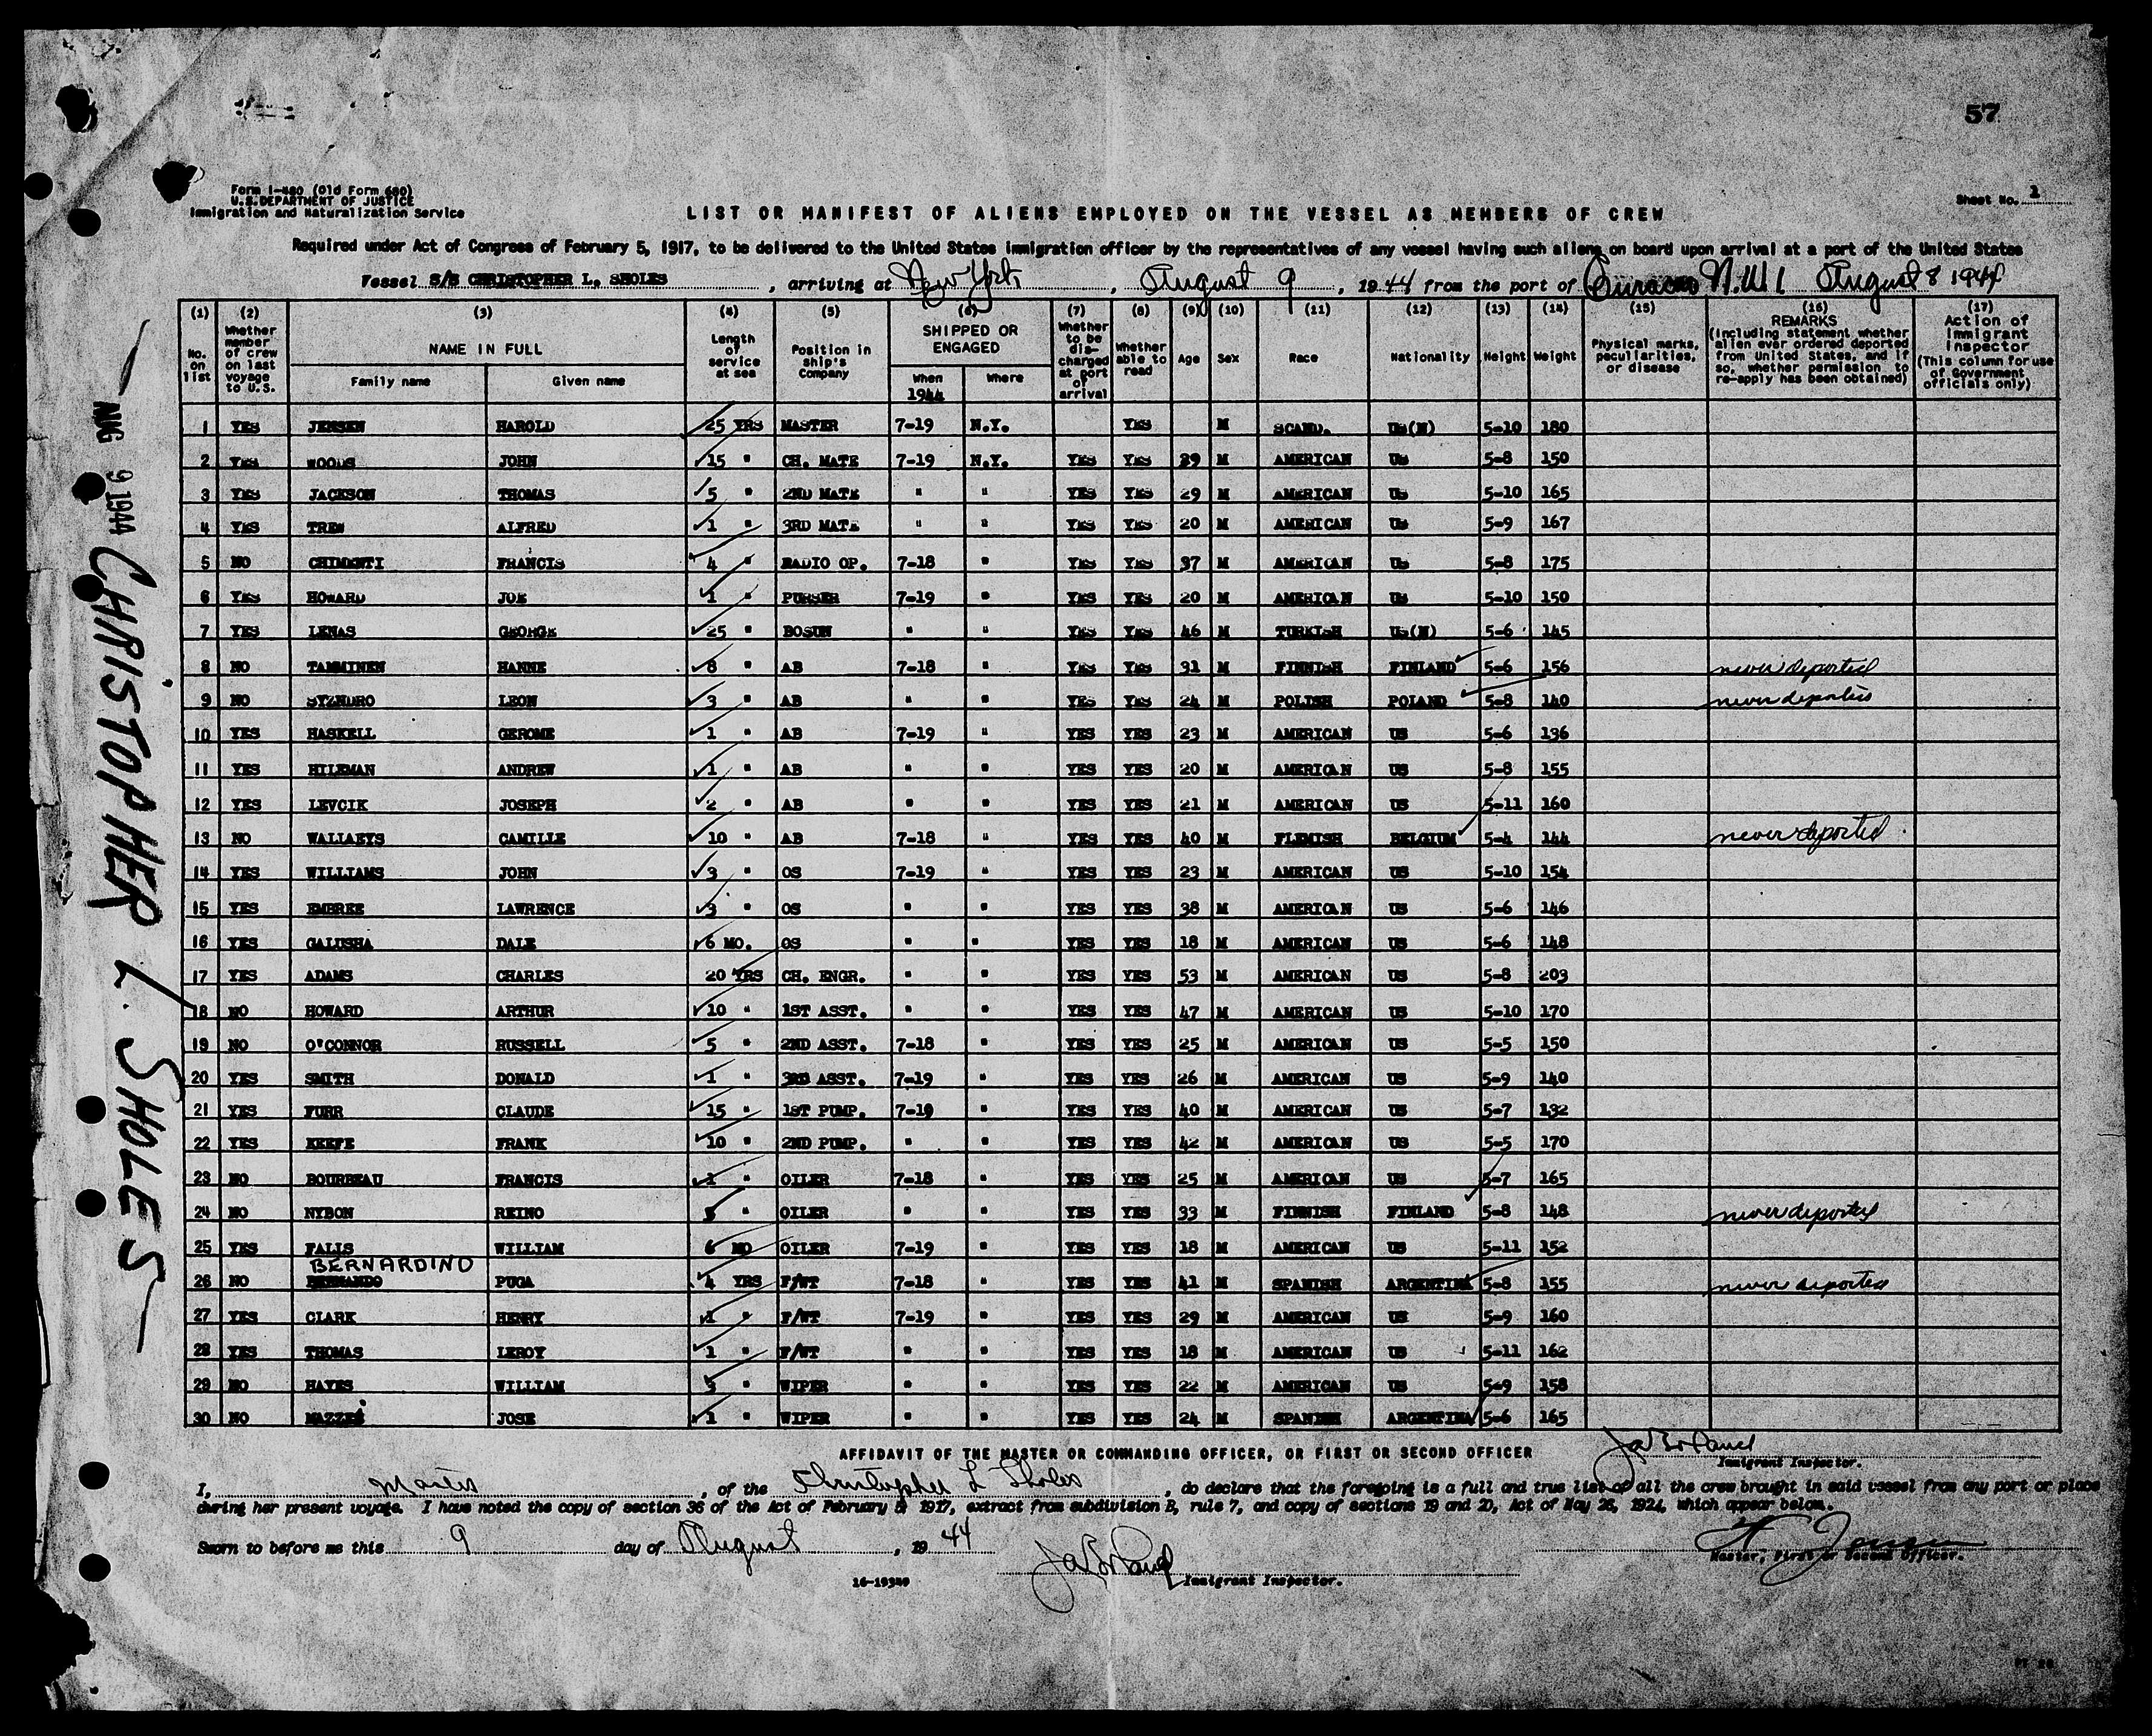 57
Form I-480 (Old Form 680)
U.S. DEPARTMENT OF JUSTICE
Immigration and Naturalization Service
Sheet No. 1
LIST OR MANIFEST OF ALIENS EMPLOYED ON THE VESSEL AS MEMBERS OF CREW
Required under Act of Congress of February 5, 1917, to be delivered to the United States immigration officer by the representatives of any vessel having such aliens on board upon arrival at a port of the United States
Vessel S/S CHRISTOPHER L. SHOLES, arriving at New York, August 9, 1944 from the port of Curacao N.W.I. August 8 1944
(1) No. on list
(2) Whether member of crew on last voyage to U.S.
(3) NAME IN FULL Family name Given name
(4) Length of service at sea
(5) Position in ship's Company
(6) SHIPPED OR ENGAGED When 1944 Where
(7) Whether to be discharged at port of arrival
(8) Whether able to read
(9) Age
(10) Sex
(11) Race
(12) Nationality
(13) Height
(14) Weight
(15) Physical marks, peculiarities, or disease
(16) REMARKS (Including statement whether alien ever ordered deported from United States, and if so, whether permission to re-apply has been obtained)
(17) Action of Immigrant Inspector (This column for use of Government officials only)
1 YES JENSEN HAROLD 25 YRS MASTER 7-19 N.Y. YES M SCAND. US(N) 5-10 180
2 YES WOODS JOHN 15 " CH. MATE 7-19 N.Y. YES YES 39 M AMERICAN US 5-8 150
3 YES JACKSON THOMAS 5 " 2ND MATE " " YES YES 29 M AMERICAN US 5-10 165
4 YES TREW ALFRED 1 " 3RD MATE " " YES YES 20 M AMERICAN US 5-9 167
5 NO CHIMENTI FRANCIS 4 " RADIO OP. 7-18 " YES YES 37 M AMERICAN US 5-8 175
6 YES HOWARD JOE 1 " PURSER 7-19 " YES YES 20 M AMERICAN US 5-10 150
7 YES LENAS GEORGE 25 " BOSUN " " YES YES 46 M TURKISH US(N) 5-6 145
8 NO TAMMINEN HANNE 8 " AB 7-18 " YES YES 31 M FINNISH FINLAND 5-6 156 never deported
9 NO SYZNDRO LEON 3 " AB " " YES YES 24 M POLISH POLAND 5-8 140 never deported
10 YES HASKELL GEROME 1 " AB 7-19 " YES YES 23 M AMERICAN US 5-6 136
11 YES HILEMAN ANDREW 1 " AB " " YES YES 20 M AMERICAN US 5-8 155
12 YES LEVCIK JOSEPH 2 " AB " " YES YES 21 M AMERICAN US 5-11 160
13 NO WALLAEYS CAMILLE 10 " AB 7-18 " YES YES 40 M FLEMISH BELGIUM 5-4 144 never deported
14 YES WILLIAMS JOHN 3 " OS 7-19 " YES YES 23 M AMERICAN US 5-10 154
15 YES EMBREE LAWRENCE 3 " OS " " YES YES 38 M AMERICAN US 5-6 146
16 YES GALUSHA DALE 6 MO. OS " " YES YES 18 M AMERICAN US 5-6 148
17 YES ADAMS CHARLES 20 YRS CH. ENGR. " " YES YES 53 M AMERICAN US 5-8 203
18 NO HOWARD ARTHUR 10 " 1ST ASST. " " YES YES 47 M AMERICAN US 5-10 170
19 NO O'CONNOR RUSSELL 5 " 2ND ASST. 7-18 " YES YES 25 M AMERICAN US 5-5 150
20 YES SMITH DONALD 1 " 3RD ASST. 7-19 " YES YES 26 M AMERICAN US 5-9 140
21 YES FURR CLAUDE 15 " 1ST PUMP. 7-19 " YES YES 40 M AMERICAN US 5-7 132
22 YES KEEFE FRANK 10 " 2ND PUMP. " " YES YES 42 M AMERICAN US 5-5 170
23 NO BOURBEAU FRANCIS 1 " OILER 7-18 " YES YES 25 M AMERICAN US 5-7 165
24 NO NYBON REINO " OILER " " YES YES 33 M FINNISH FINLAND 5-8 148 never deported
25 YES FALLS WILLIAM 6 MO OILER 7-19 " YES YES 18 M AMERICAN US 5-11 152
BERNARDINO
26 NO BERNANDO PUGA 4 YRS F/WT 7-18 " YES YES 41 M SPANISH ARGENTINA 5-8 155 never deported
27 YES CLARK HENRY 1 " F/WT 7-19 " YES YES 29 M AMERICAN US 5-9 160
28 YES THOMAS LEROY 1 " F/WT " " YES YES 18 M AMERICAN US 5-11 162
29 NO HAYES WILLIAM 3 " WIPER " " YES YES 22 M AMERICAN US 5-9 158
30 NO JOSE 1 " WIPER " " YES YES 24 M SPANISH ARGENTINA 5-6 165
AFFIDAVIT OF THE MASTER OR COMMANDING OFFICER, OR FIRST OR SECOND OFFICER
Immigrant Inspector.
I, Master, of the Christopher L Sholes, do declare that the foregoing is a full and true list of all the crew brought in said vessel from any port or place
during her present voyage. I have noted the copy of section 36 of the Act of February 5, 1917, extract from subdivision B, rule 7, and copy of sections 19 and 20, Act of May 26, 1924, which appear below.
Sworn to before me this 9 day of August, 1944
Master, First or Second Officer.
16-19349
Immigrant Inspector.
AUG 9 1944 CHRISTOPHER L. SHOLES